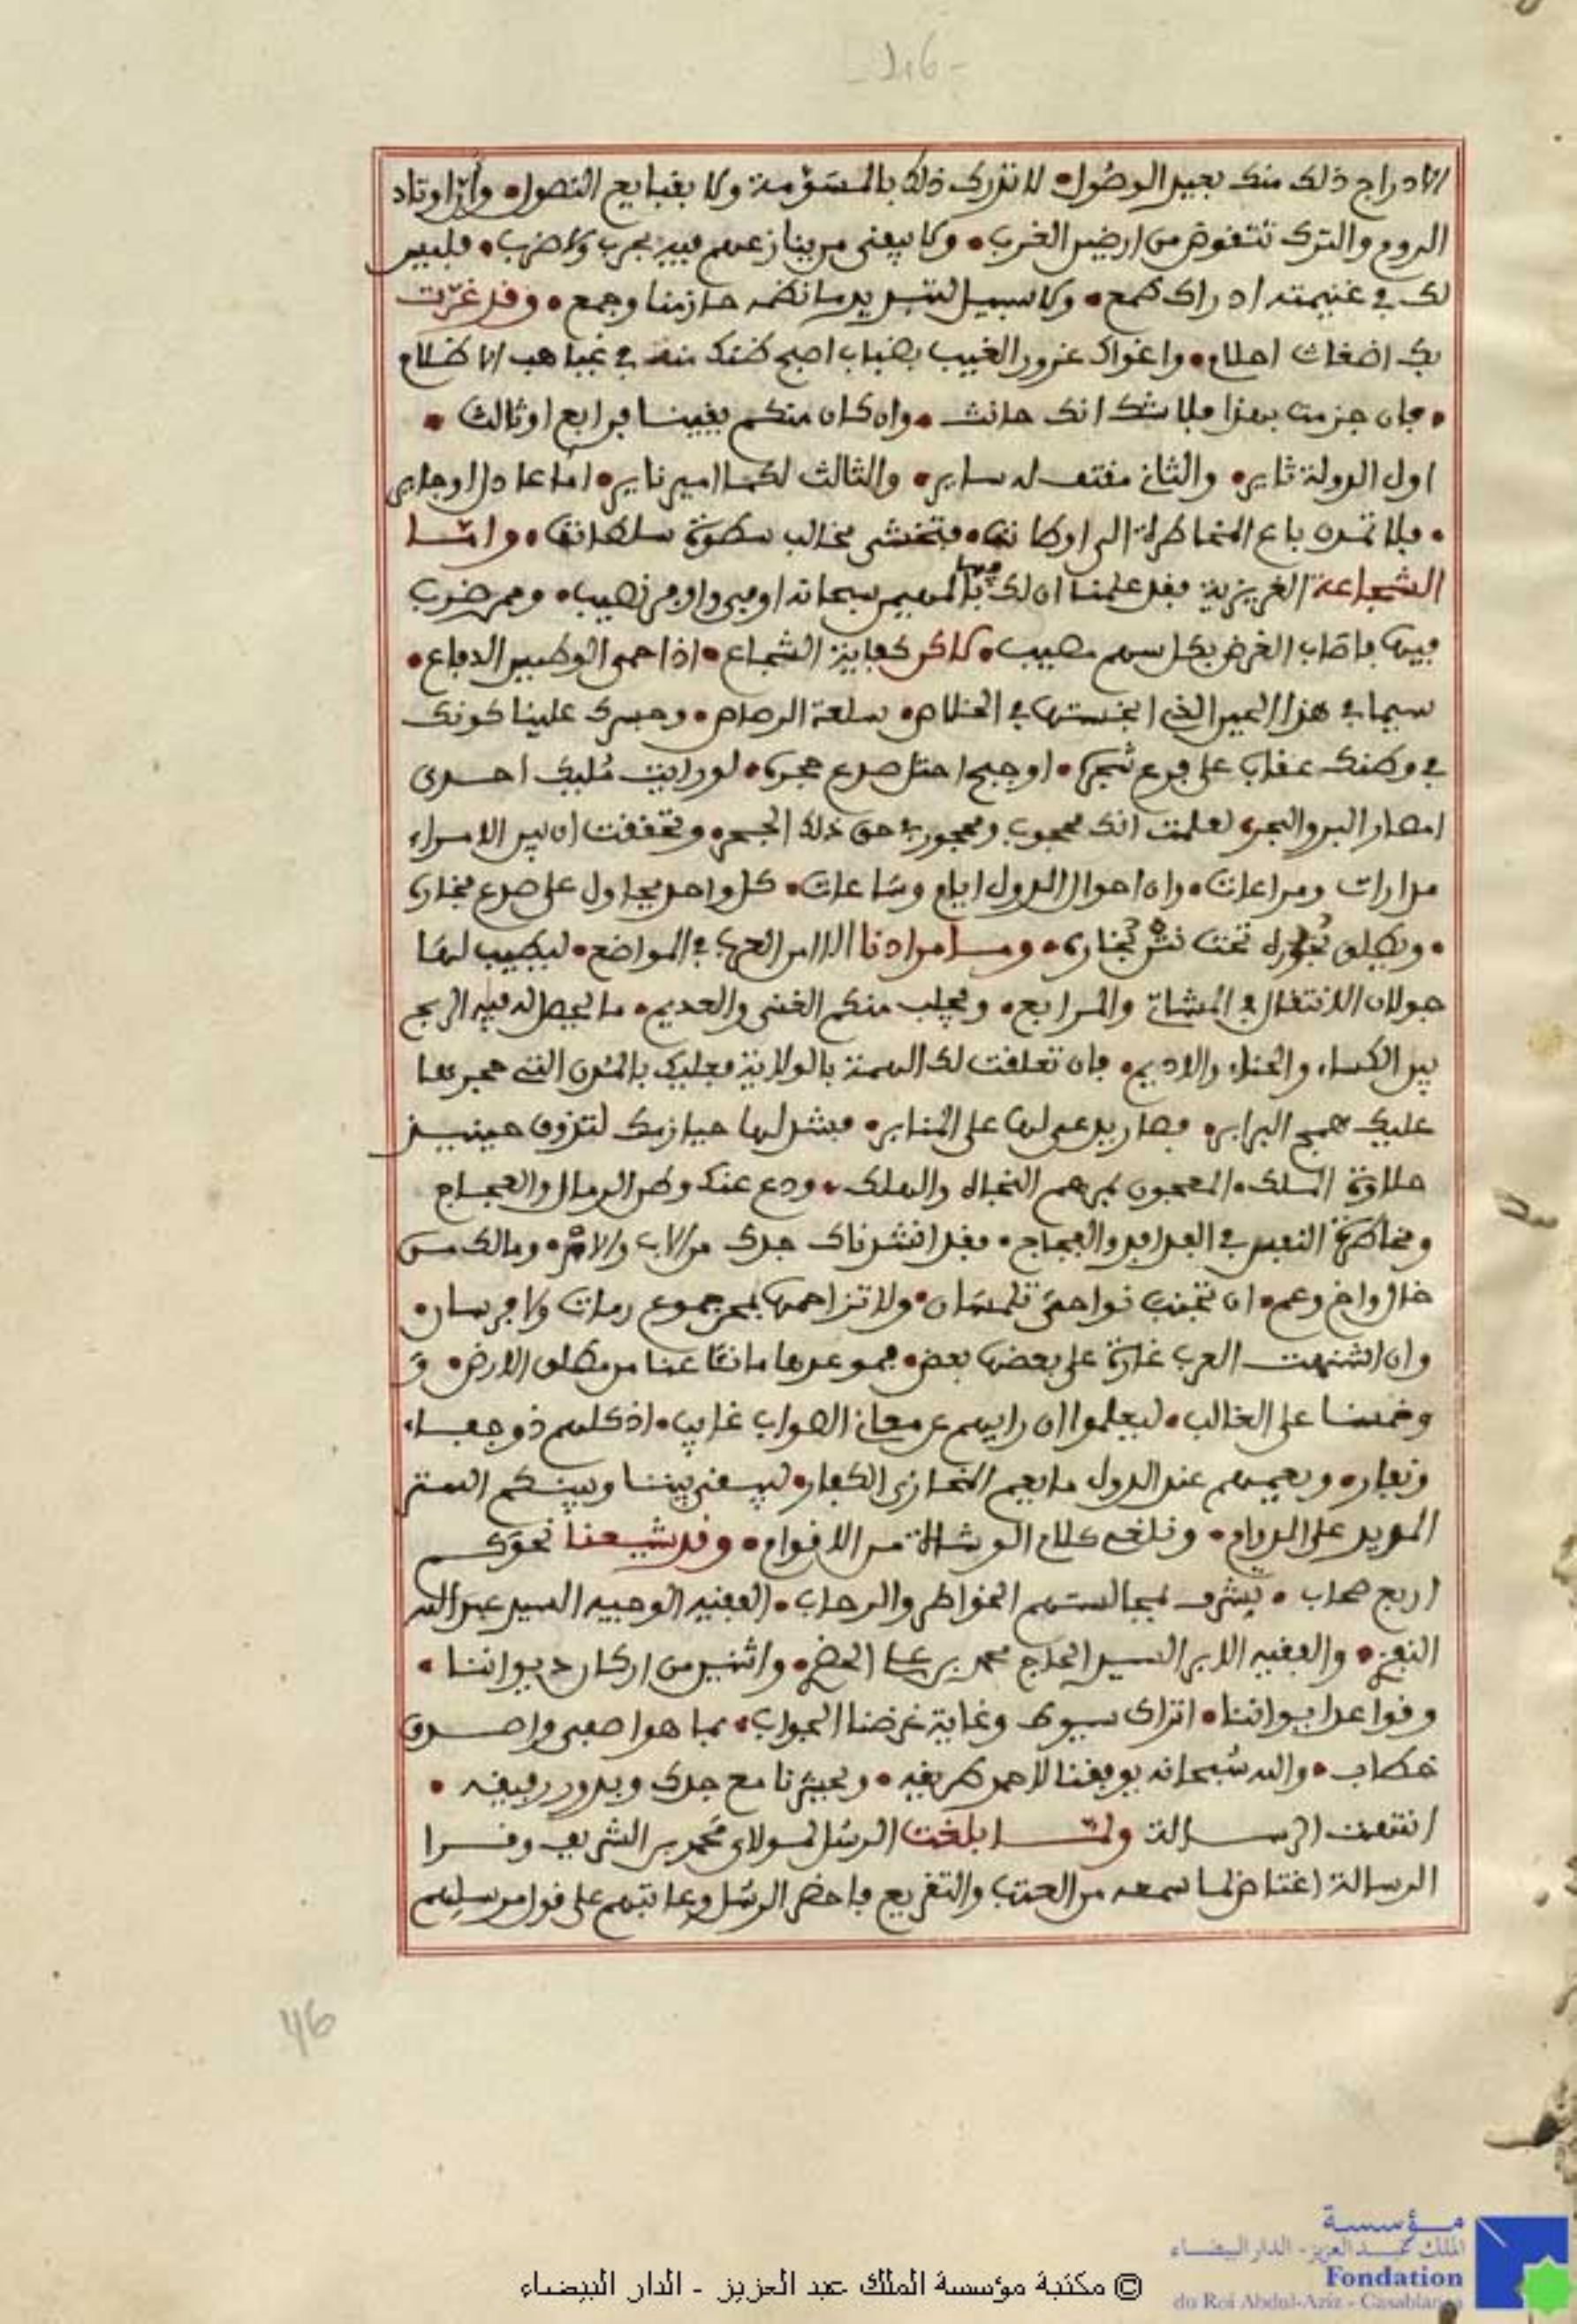 -46-
الادراج ذلك منك بعيد الوصول • لا تدرك ذلك بالمسومة ولا بقبايع النصول • وأن اوتاد
الروم والترك تتقوض من ارض الغرب • ولا يبقى من ينازعهم فيه بحرب ولا ضرب • فليس
لك في غنيمته ادراك طمع • ولا سبيل لتبديد ما نظمه حازمنا وجمع • وقد غرت
بك اضغاث احلام • واغواك غرور الغيب بضباب اصبح ظنك منه في غياهب الاظلام
• فان جزمت بهذا فلا شك انك حانث • وان كان منكم يقينا فرابع او ثالث •
اول الدولة ثاير • والثاني مقتف له ساير • والثالث لكما امير ناير • اما عادل او جاير
• فلا تمدن باع المخاطرة الى اوطاننا • فتخشى مخالب سطوة سلطاننا • واما
الشجاعة الغريزية فقد علمنا ان لك فيها بالمهيمن سبحانه اوفى واوفر نصيب • وممن ضرب
فيها فاصاب الغرض بكل سهم مصيب • لاكن كفاية الشجاع • اذا حمى الوطيس الدفاع •
سيما في هذا الحين الذي انبخستها في الخلاص • سلعة الرصاص • وجسرك علينا كونك
في وطنك عقاب على فرع شجرة • او جبح احتل صدع حجرة • لو رايت مليك احدى
امصار البر والبحر • لعلمت انك محجوب ومحجور في حق ذلك الحجر • وتحققت ان بين الامراء
مدارات ومراعات • وان احوال الدول ايام وساعات • كل واحد يحاول على صدع فخاره
• ويطلق بخوره تحت نشر بخاره • وما مرادنا الا امر العرب في المواضع • ليطيب لها
جولان الانتقال في المشاتي والمرابع • ويجلب منكم الغني والعديم • ما يحصل له فيه الربح
بين الكساء والحناء والاديم • فان تعلقت لك الهمة بالولاية فعليك بالمدن التي حجرها
عليك همج البرابر • فصار يدعى لها على المنابر • فشد لها حيازمك لتذوق حينيذ
حلاوة الملك • المعجون بمرهم النجاة والهلك • ودع عنك وطن الرمال والعجاج
ومخاطرة النفس في الفدافد والفجاج • فقد انشدناك جدك من الاب والام • وما لك من
خال واخ وعم • ان تجنب نواحي تلمسان • ولا تزاحمها بجموع رمات ولا فرسان •
وان اشتهت العرب غارة على بعضها بعض • فموعدها ما نقا عنا من مطلق الارض • و
وخمسنا على الغالب • ليعلموا ان رايهم عن معاني الصواب غايب • اذ كلهم ذو جفاء
ونفار • وبعيهم عند الدول ما بعيم النصارى الكفار • ليبقى بيننا وبينكم الستر
المديد على الدوام • ونلغي كلام الوشاة من الاقوام • وقد شيعنا نحوكم
اربع صحاب • يشرف بمجالستهم الخواطر والرحاب • الفقيه الوجيه السيد عبد الله
النفزي • والفقيه الابر السيد الحاج محمد بن علي الحضري • واثنين من اركان ديواننا •
وقواعد ايواننا • اتراك سيوط وغاية غرضنا الجواب • بما هو اصفى واصدق
خطاب • والله سبحانه يوفقنا لاحمد طريقه • ويحشرنا مع جدك وبدور رفيقه •
انتهت الرسالة ولما بلغت الرسل لمولاي محمد بن الشريف وقرا
الرسالة اغتاظ لما سمعه من العتب والتقريع فاحضر الرسل وعاتبهم على قول مرسلهم
46
© مكتبة مؤسسة الملك عبد العزيز - الدار البيضاء
مؤسسة
الملك عبد العزيز - الدار البيضاء
Fondation
du Roi Abdul-Aziz - Casablanca